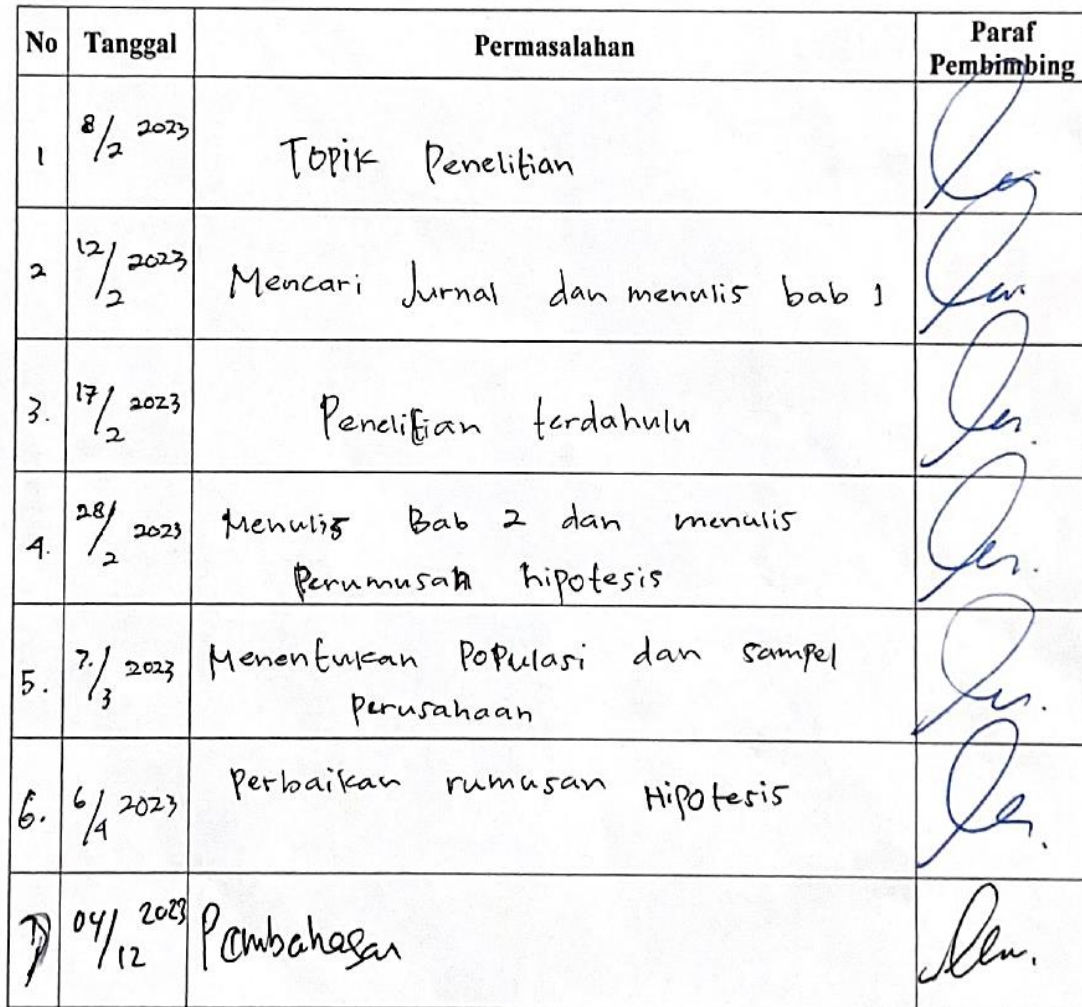 No Tanggal Permasalahan Paraf Pembimbing
1 8/2 2023 Topik Penelitian
2 12/2 2023 Mencari Jurnal dan menulis bab 1
3. 17/2 2023 Penelitian terdahulu
4. 28/2 2023 Menulis Bab 2 dan menulis
perumusan hipotesis
5. 7./3 2023 Menentukan Populasi dan sampel
perusahaan
6. 6/4 2023 Perbaikan rumusan Hipotesis
7 04/12 2023 Pembahasan